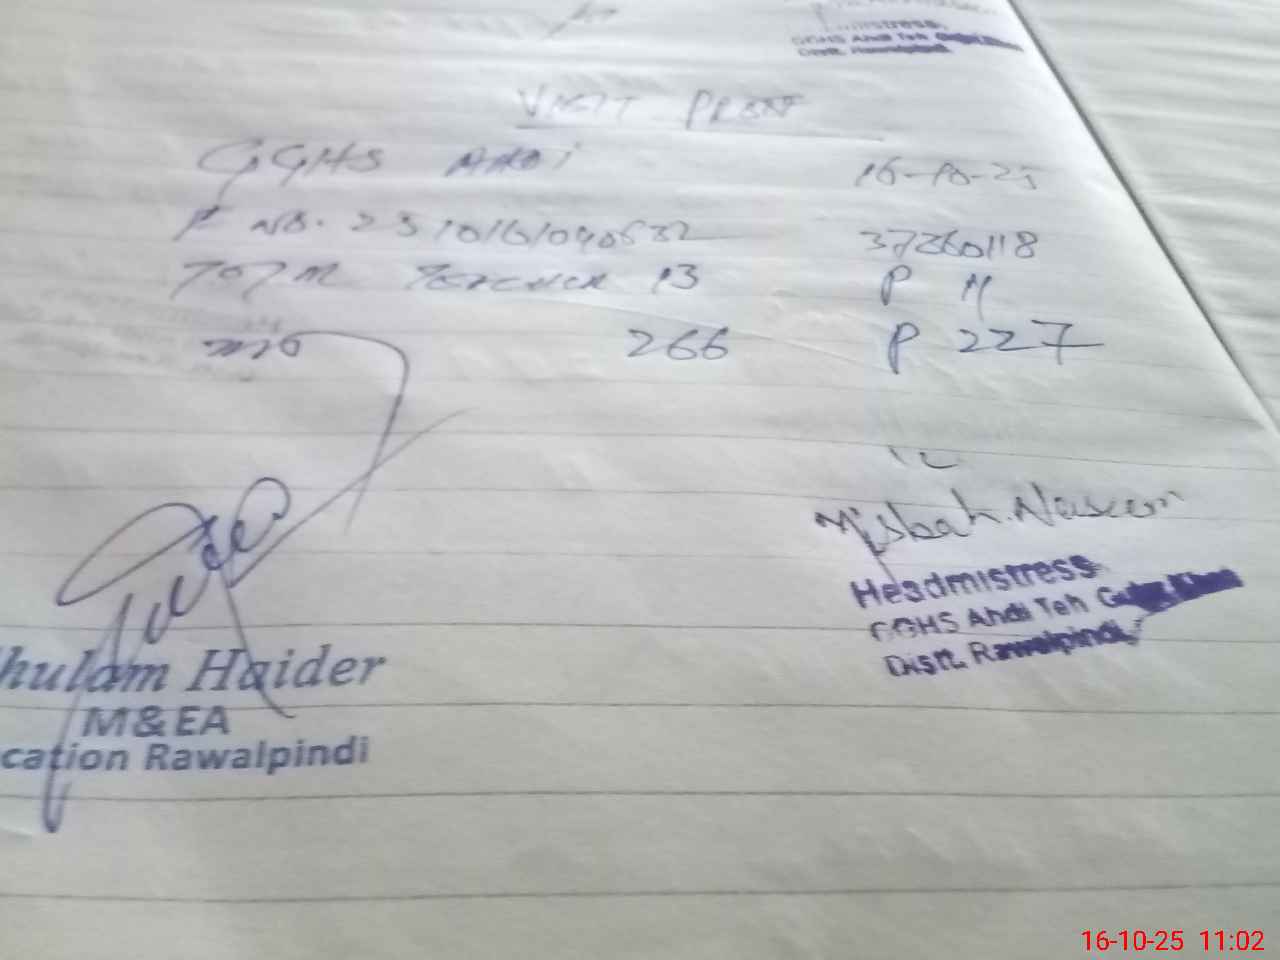 mistress
GGHS Andi Teh
Distt. Rawalpindi
VISIT PROOF
GGHS ANDi 16-10-25
NO. 37360118
TOTAL TEACHER 13 P 11
266 P 227
Misbah Naseem
Headmistress
GGHS Andi Teh Gujar Khan
Distt. Rawalpindi
hulam Haider
M&EA
cation Rawalpindi
16-10-25 11:02